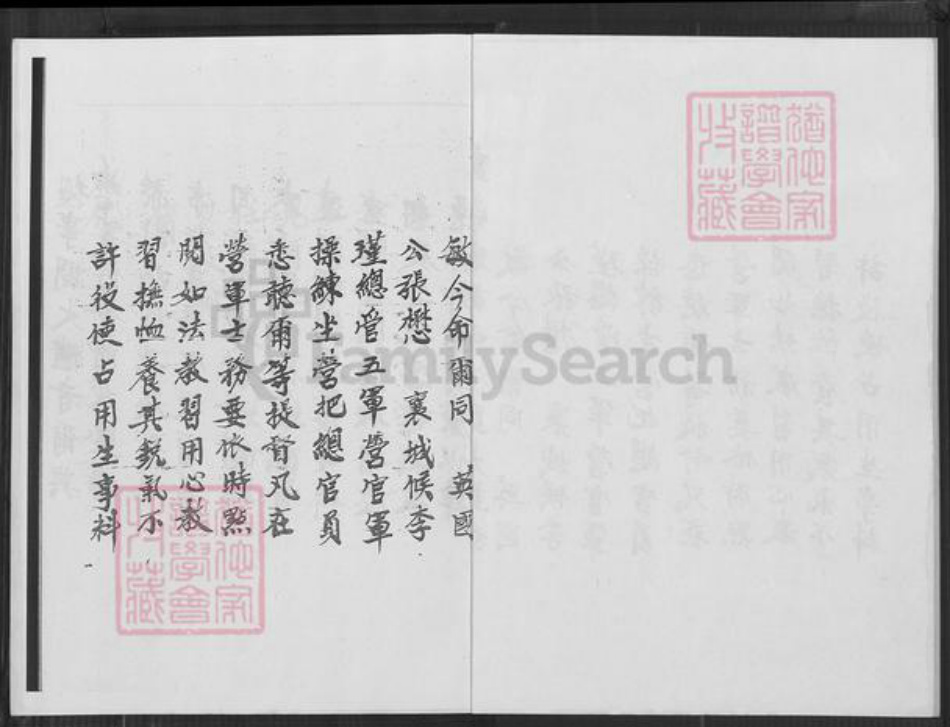 敏今命爾同 英國
公張懋 襄城候李
瑾總管五軍營官軍
操練坐營把總官員
悉聽爾等提督凡在
營軍士務要依時點
閱如法教習用心教
習撫恤養其銳氣不
許役使占用生事科
FamilySearch
譜學會
收藏
譜學會
收藏